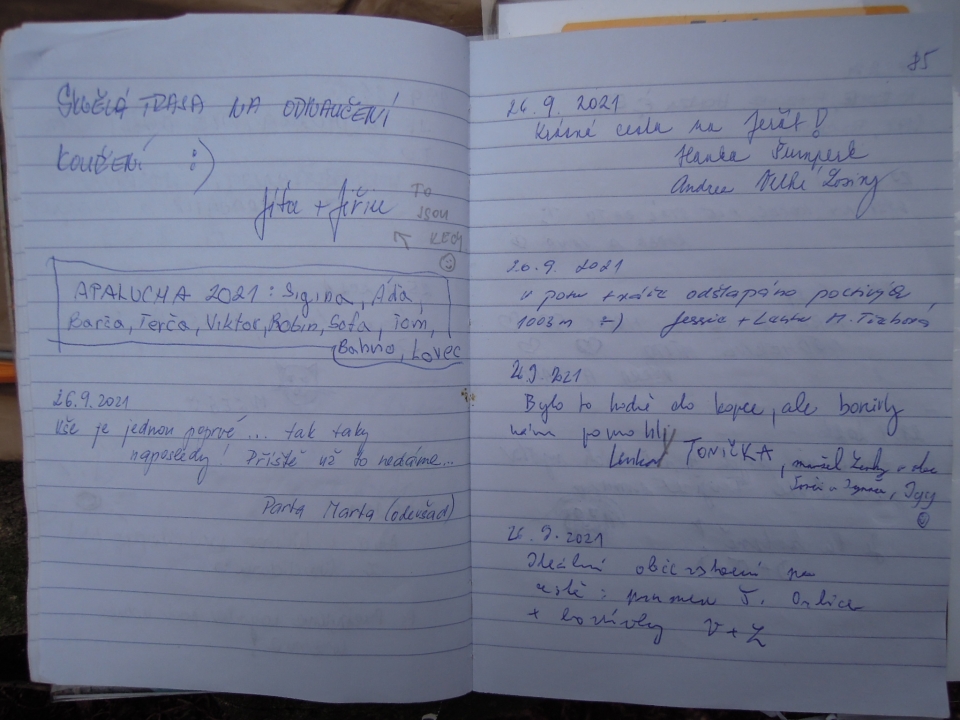 SKVĚLÁ TRASA NA ODNAUČENÍ
KOUŘENÍ :)
Jíťa + Jiřin
TO
JSOU
KECY
APALUCHA 2021 : Sigina, Áďa,
Barča, Terča, Viktor, Robin, Sofa, Tom,
Bahno, Lovec
26.9.2021
Vše je jednou poprvé... tak taky
naposledy! Příště už to nedáme...
Parta Marta (odevšad)
85
26.9. 2021
Krásná cesta na Jeřáb!
Hanka Šumperk
Andrea Velké Losiny
20.9. 2021
odšlapáno
1003m :-) Jessie +
2021
Bylo to hodně do kopce, ale borůvky
nám pomohly
Lenka TONIČKA,
26.9.2021
Ideální občerstvení na
cestě : pramen T. Orlice
+ borůvky V+Z